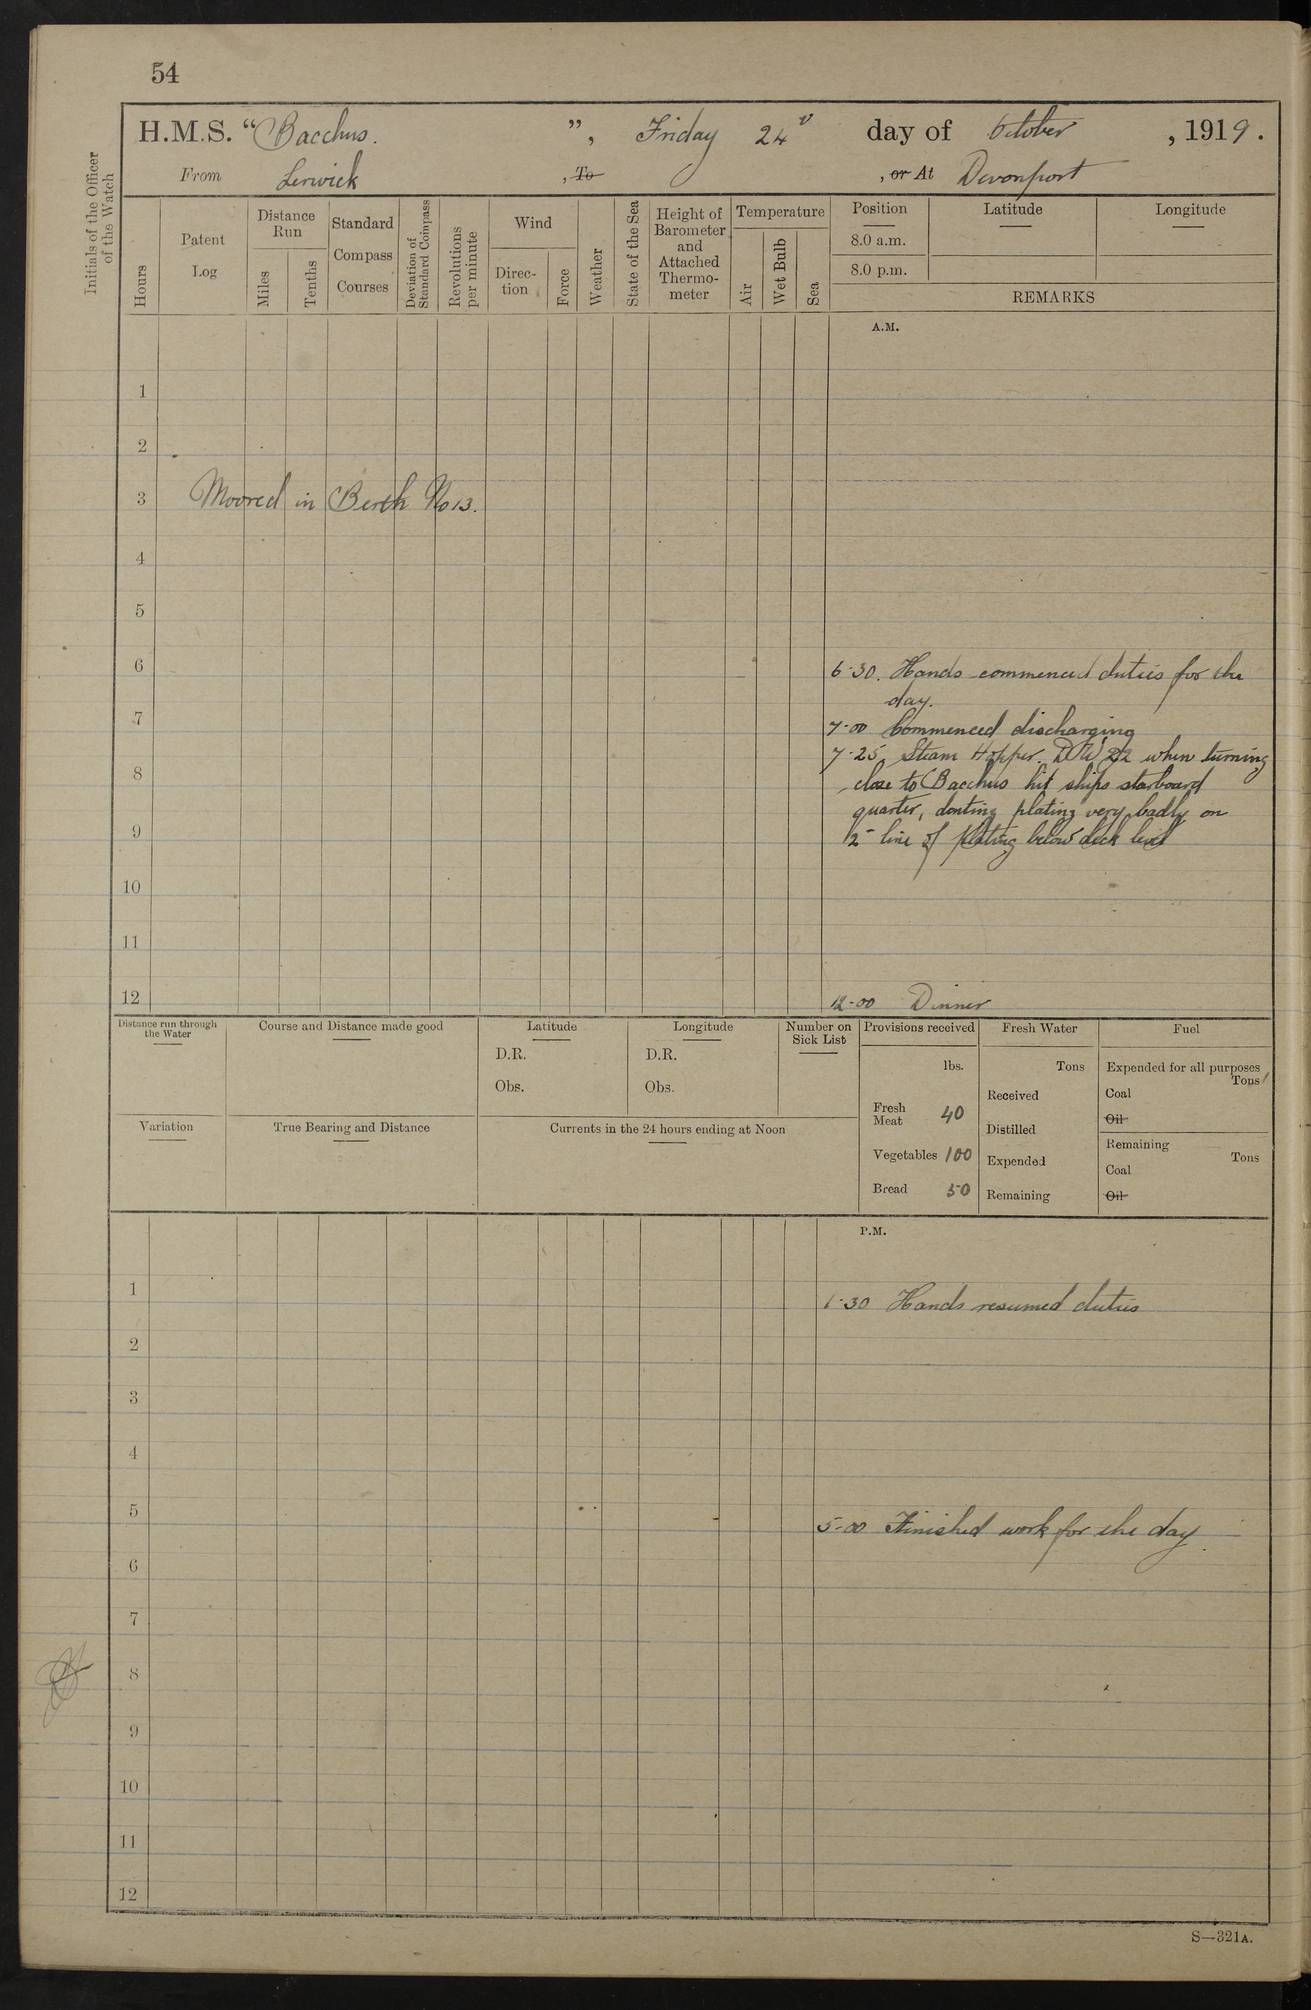 54
H.M.S. "Bacchus.", Friday 24 day of October, 1919.
From Lerwick, To, or At Devonport
Initials of the Officer of the Watch
Hours
Patent Log
Distance Run
Miles
Tenths
Standard Compass Courses
Deviation of Standard Compass
Revolutions per minute
Wind
Direc-tion
Force
Weather
State of the Sea
Height of Barometer and Attached Thermo-meter
Temperature
Air
Wet Bulb
Sea
Position
Latitude
Longitude
8.0 a.m.
8.0 p.m.
REMARKS
A.M.
1
2
3 Moored in Berth No 13.
4
5
6 6-30. Hands commenced duties for the
day.
7 7-00 Commenced discharging
7-25 Steam Hopper. D/W 22 when turning
8 close to Bacchus hit ships starboard
quarter, denting plating very badly on
9 2 line of plating below deck level
10
11
12 12-00 Dinner
Distance run through the Water
Course and Distance made good
Latitude
D.R.
Obs.
Longitude
D.R.
Obs.
Number on Sick List
Provisions received
lbs.
Fresh Meat 40
Vegetables 100
Bread 50
Fresh Water
Tons
Received
Distilled
Expended
Remaining
Fuel
Expended for all purposes
Tons
Coal
Oil
Remaining
Tons
Coal
Oil
Variation
True Bearing and Distance
Currents in the 24 hours ending at Noon
P.M.
1 1-30 Hands resumed duties
2
3
4
5 5-00 Finished work for the day
6
7
8
9
10
11
12
S—321A.